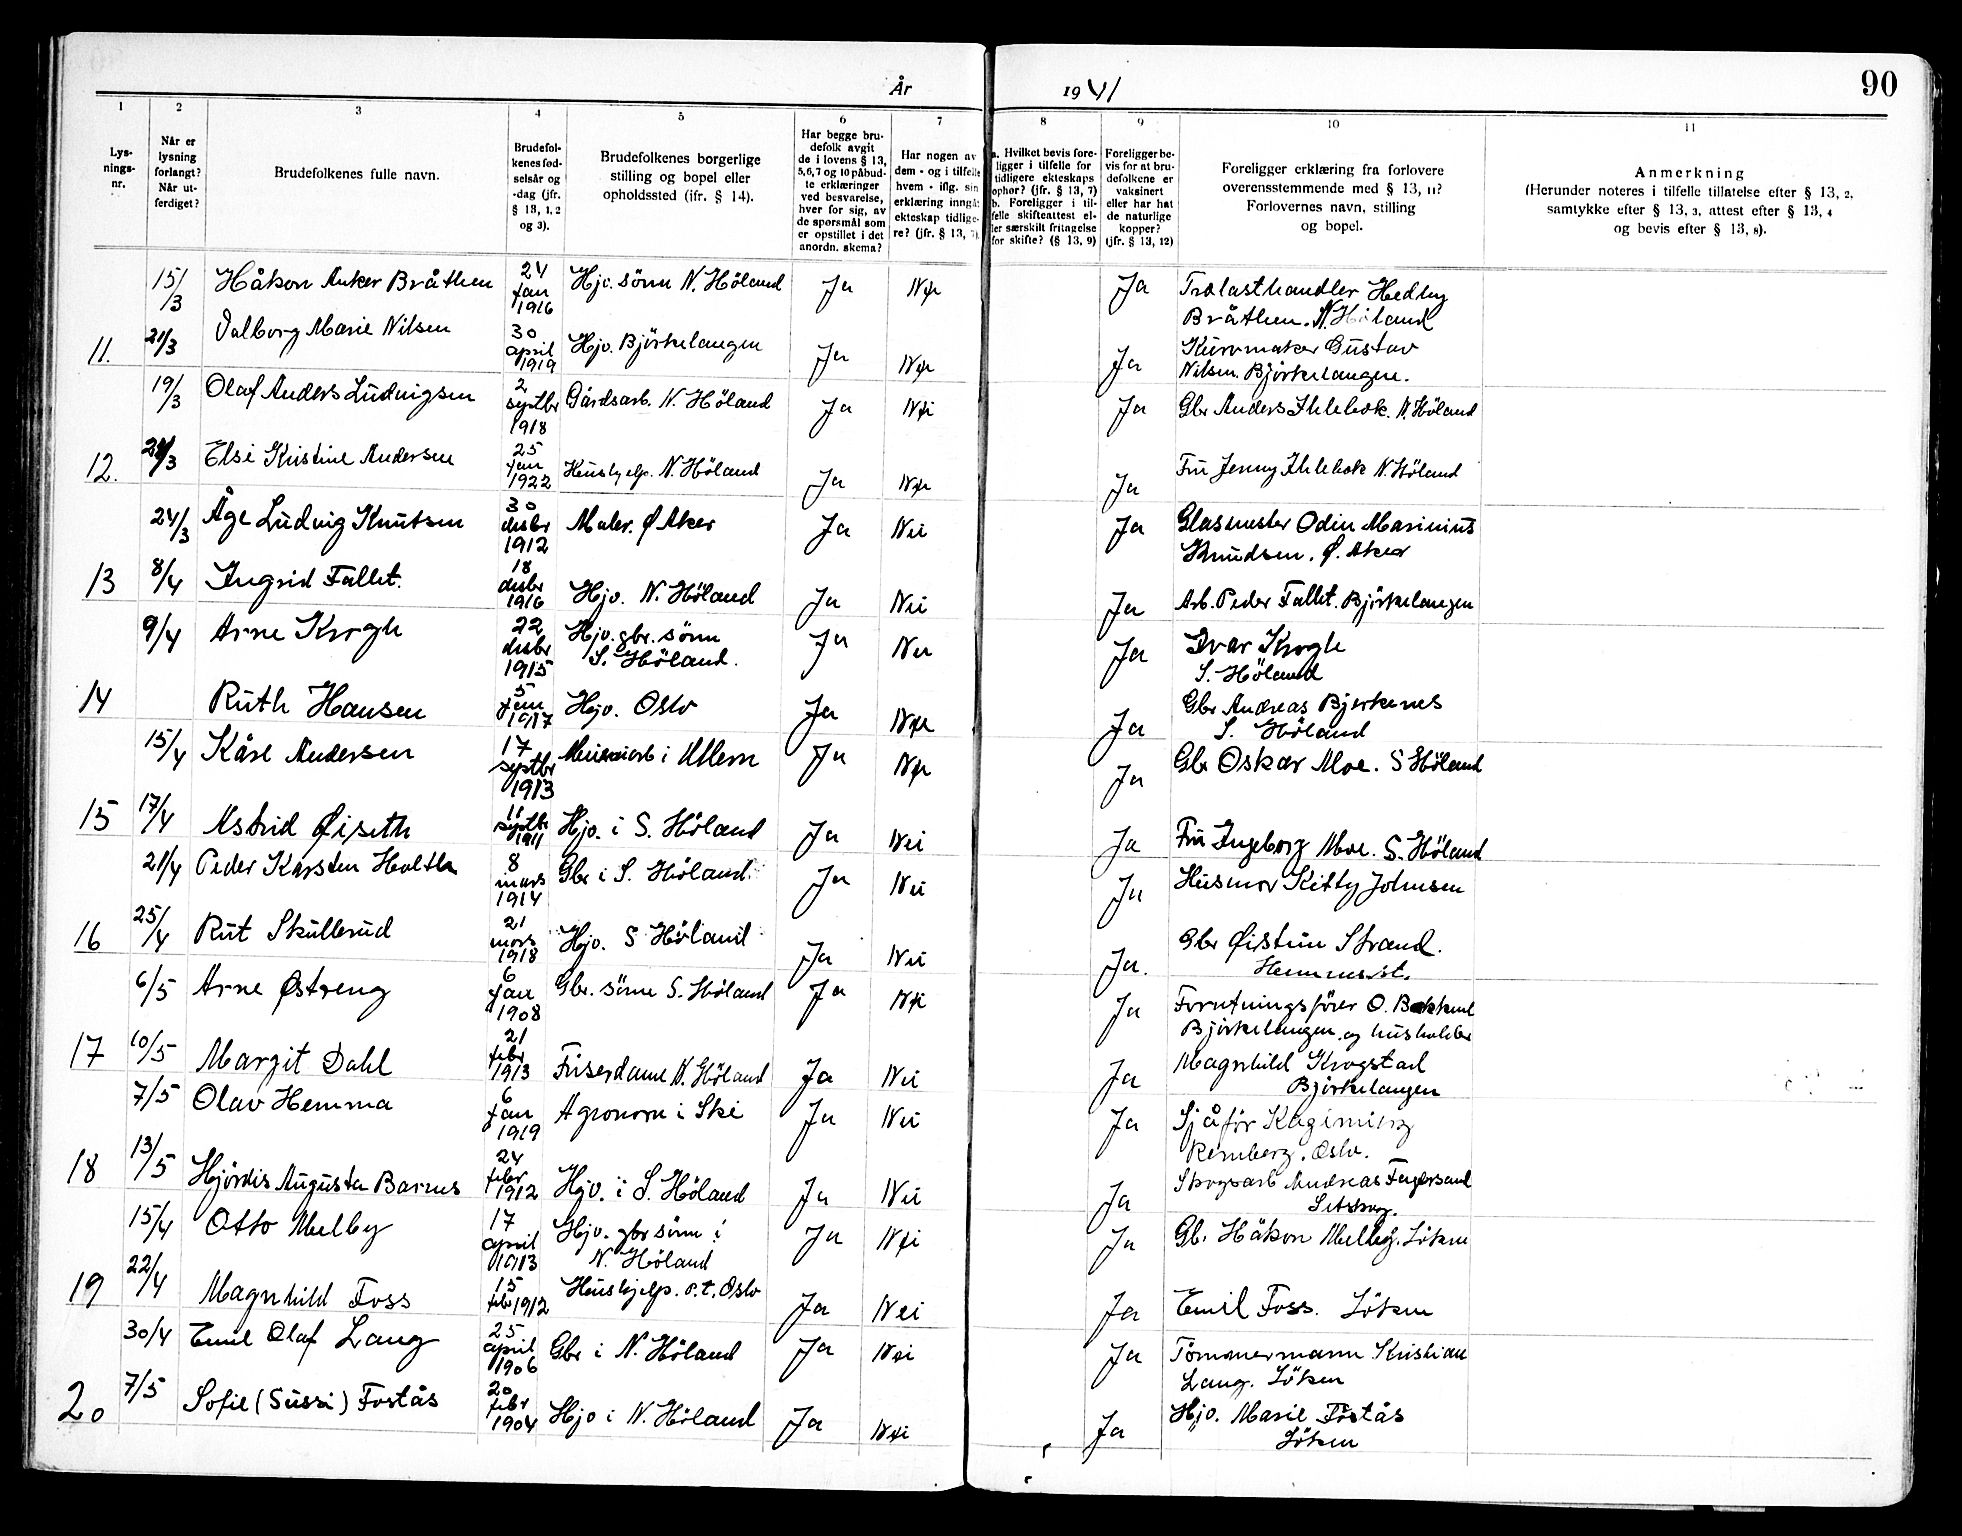 År 1941
90
1 2 3 4 5 6 7 8 9 10 11
Lys-
nings-
nr.
Når er
lysning
forlangt?
Når ut-
ferdiget?
Brudefolkenes fulle navn.
Brudefol-
kenes fød-
selsår og
-dag (jfr.
§ 13, 1, 2
og 3).
Brudefolkenes borgerlige
stilling og bopel eller
opholdssted (ifr. § 14).
Har begge bru-
defolk avgit
de i lovens § 13,
5,6,7 og 10 påbud-
te erklæringer
ved besvarelse,
hver for sig, av
de spørsmål som
er opstillet i det
anordn. skema?
Har nogen av
dem - og i tilfelle
hvem - iflg. sin
erklæring inngåt
ekteskap tidlige-
re? (jfr. § 13, 7).
a. Hvilket bevis fore-
ligger i tilfelle for
tidligere ekteskaps
ophør? (jfr. § 13, 7)
b. Foreligger i til-
felle skifteattest el-
ler særskilt fritagelse
for skifte? (§ 13, 9)
Foreligger be-
vis for at bru-
defolkene er
vaksinert
eller har hat
de naturlige
kopper?
(jfr. § 13, 12)
Foreligger erklæring fra forlovere
overensstemmende med § 13, 11?
Forlovernes navn, stilling
og bopel.
Anmerkning
(Herunder noteres i tilfelle tillatelse efter § 13, 2,
samtykke efter § 13, 3, attest efter § 13, 4
og bevis efter § 13, 8).
15/3 Håkon Anker Bråthen 24 jan 1916 Hjv. sönn N. Höland Ja Nei Ja Trelasthandler Hedley
Bråthen. N. Höland
11. 21/3 Valborg Marie Nilsen 30 april 1919 Hjv. Björkelangen Ja Nei Ja Kurvmaker Gustav
Nilsen. Björkelangen.
19/3 Olaf Anders Ludvigsen 2 septbr 1918 Gårdsarb. N. Höland Ja Nei Ja Gbr Anders Ihlebæk. N. Höland
12. /3 Else Kristine Andersen 25 jan 1922 Hushjelp. N. Höland Ja Nei Ja Fru Jenny Ihlebæk N. Höland
24/3 Åge Ludvig Knutsen 30 desbr 1912 Maler. Ø Aker Ja Nei Ja Glasmester Odin Marinius
Knudsen. Ø. Aker
13 8/4 Ingrid Fallet. 18 desbr 1916 Hjv. N. Höland Ja Nei Ja Arb. Peder Fallet. Björkelangen
9/4 Arne Krogh 22 desbr 1915 Hjv. gbr. sönn
S. Höland. Ja Nei Ja Ivar Krogh
S. Höland
14 Ruth Hansen 5 jan 1917 Hjv. Oslo Ja Nei Ja Gbr Andreas Bjerkenes
S. Höland
15/4 Kåre Andersen 17 septbr 1913 i Ullern Ja Nei Ja Gbr Oskar Moe. S Höland
15 17/4 Astrid Øiseth 11 septbr 1911 Hjv. i S. Höland Ja Nei Ja Fru Ingeborg Moe. S. Höland
21/4 Peder Karsten Holtla 8 mars 1914 Gbr i S. Höland. Ja Nei Ja Husmor Kitty Johnsen
16 25/4 Rut Skullerud 21 mars 1918 Hjv. S Höland Ja Nei Ja. Gbr Øistein Strand.
Hemnes st.
6/5 Arne Østreng 6 jan 1908 Gbr. sönn S. Höland Ja Nei Ja Forretningsförer O. Bakkerud
Björkelangen og husholder
17 10/5 Margit Dahl 21 febr 1913 Friserdame N. Höland Ja Nei Ja Magnhild Krogstad
Björkelangen
7/5 Olav Hemma 6 jan 1919 Agronom i Ski Ja Nei Ja Sjåför
Remberg. Oslo.
18 13/5 Hjördis Augusta Barnes 24 febr 1912 Hjv. i S. Höland Ja Nei Ja Skogsarb Andreas Fagersand
Setskog.
15/4 Otto Melby 17 april 1913 Hjv. gbr sönn i
N. Höland Ja Nei Ja Gb. Håkon Melby. Löken
19 22/4 Magnhild Foss 15 febr 1912 Hushjelp. p.t. Oslo Ja Nei Ja Emil Foss. Löken
30/4 Emil Olaf Lang 25 april 1906 Gbr i N. Höland Ja Nei Ja Tömmermann Kristian
Lang. Löken
20 7/5 Sofie (Sussi) Fostås 20 febr 1904 Hjv i N. Höland Ja Nei Ja Hjv. Marie Fostås
Löken